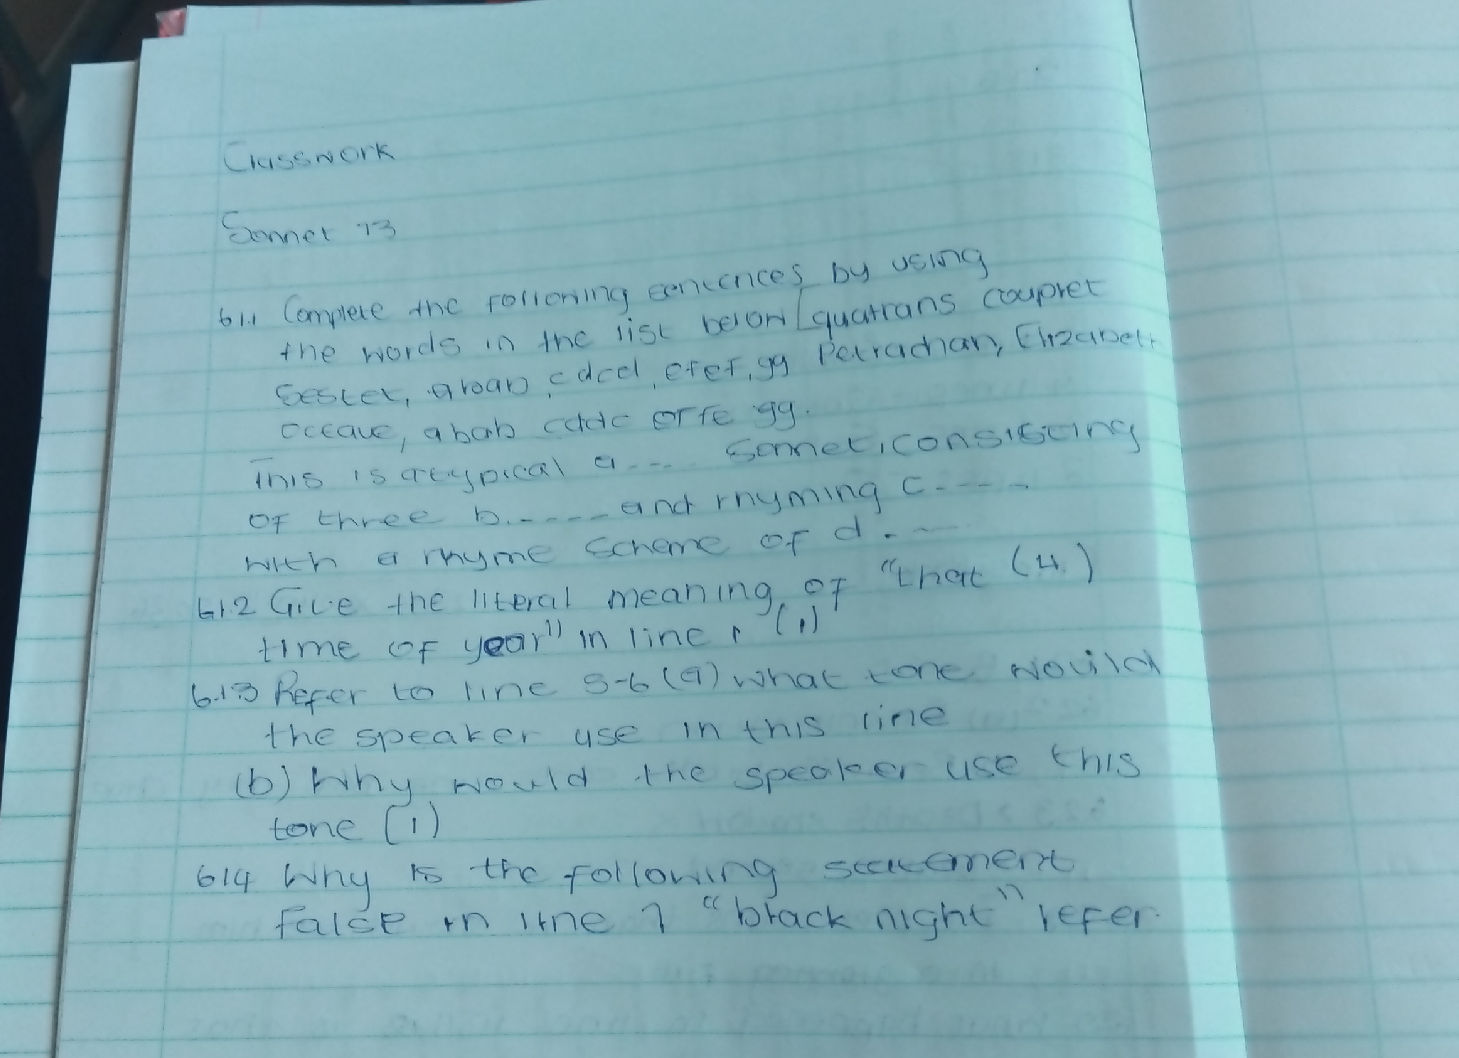 Classwork
Sonnet 73
6.1.1 Complete the following sentences by using
the words in the list below quatrans couplet
Sestet, abab cdcd, efef, gg Petrachan, Elizabeth
Occave, abab cddc effe gg.
This is a typical a.... Sonnet, consisting
of three b.----- and rhyming c.----
with a rhyme scheme of d.--
6.1.2 Give the literal meaning of "that (4)
time of year" in line 1 (1)
6.1.3 Refer to line 5-6 (a) What tone would
the speaker use in this line
(b) Why would the speaker use this
tone (1)
614 Why is the following statement
false in line 7 "black night" refer